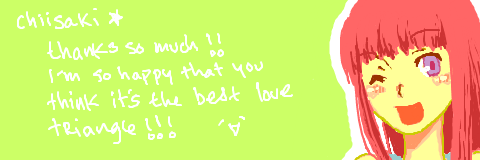 chiisaki ★
thanks so much!!
i'm so happy that you
think it's the best love
triangle!!! ´∀`